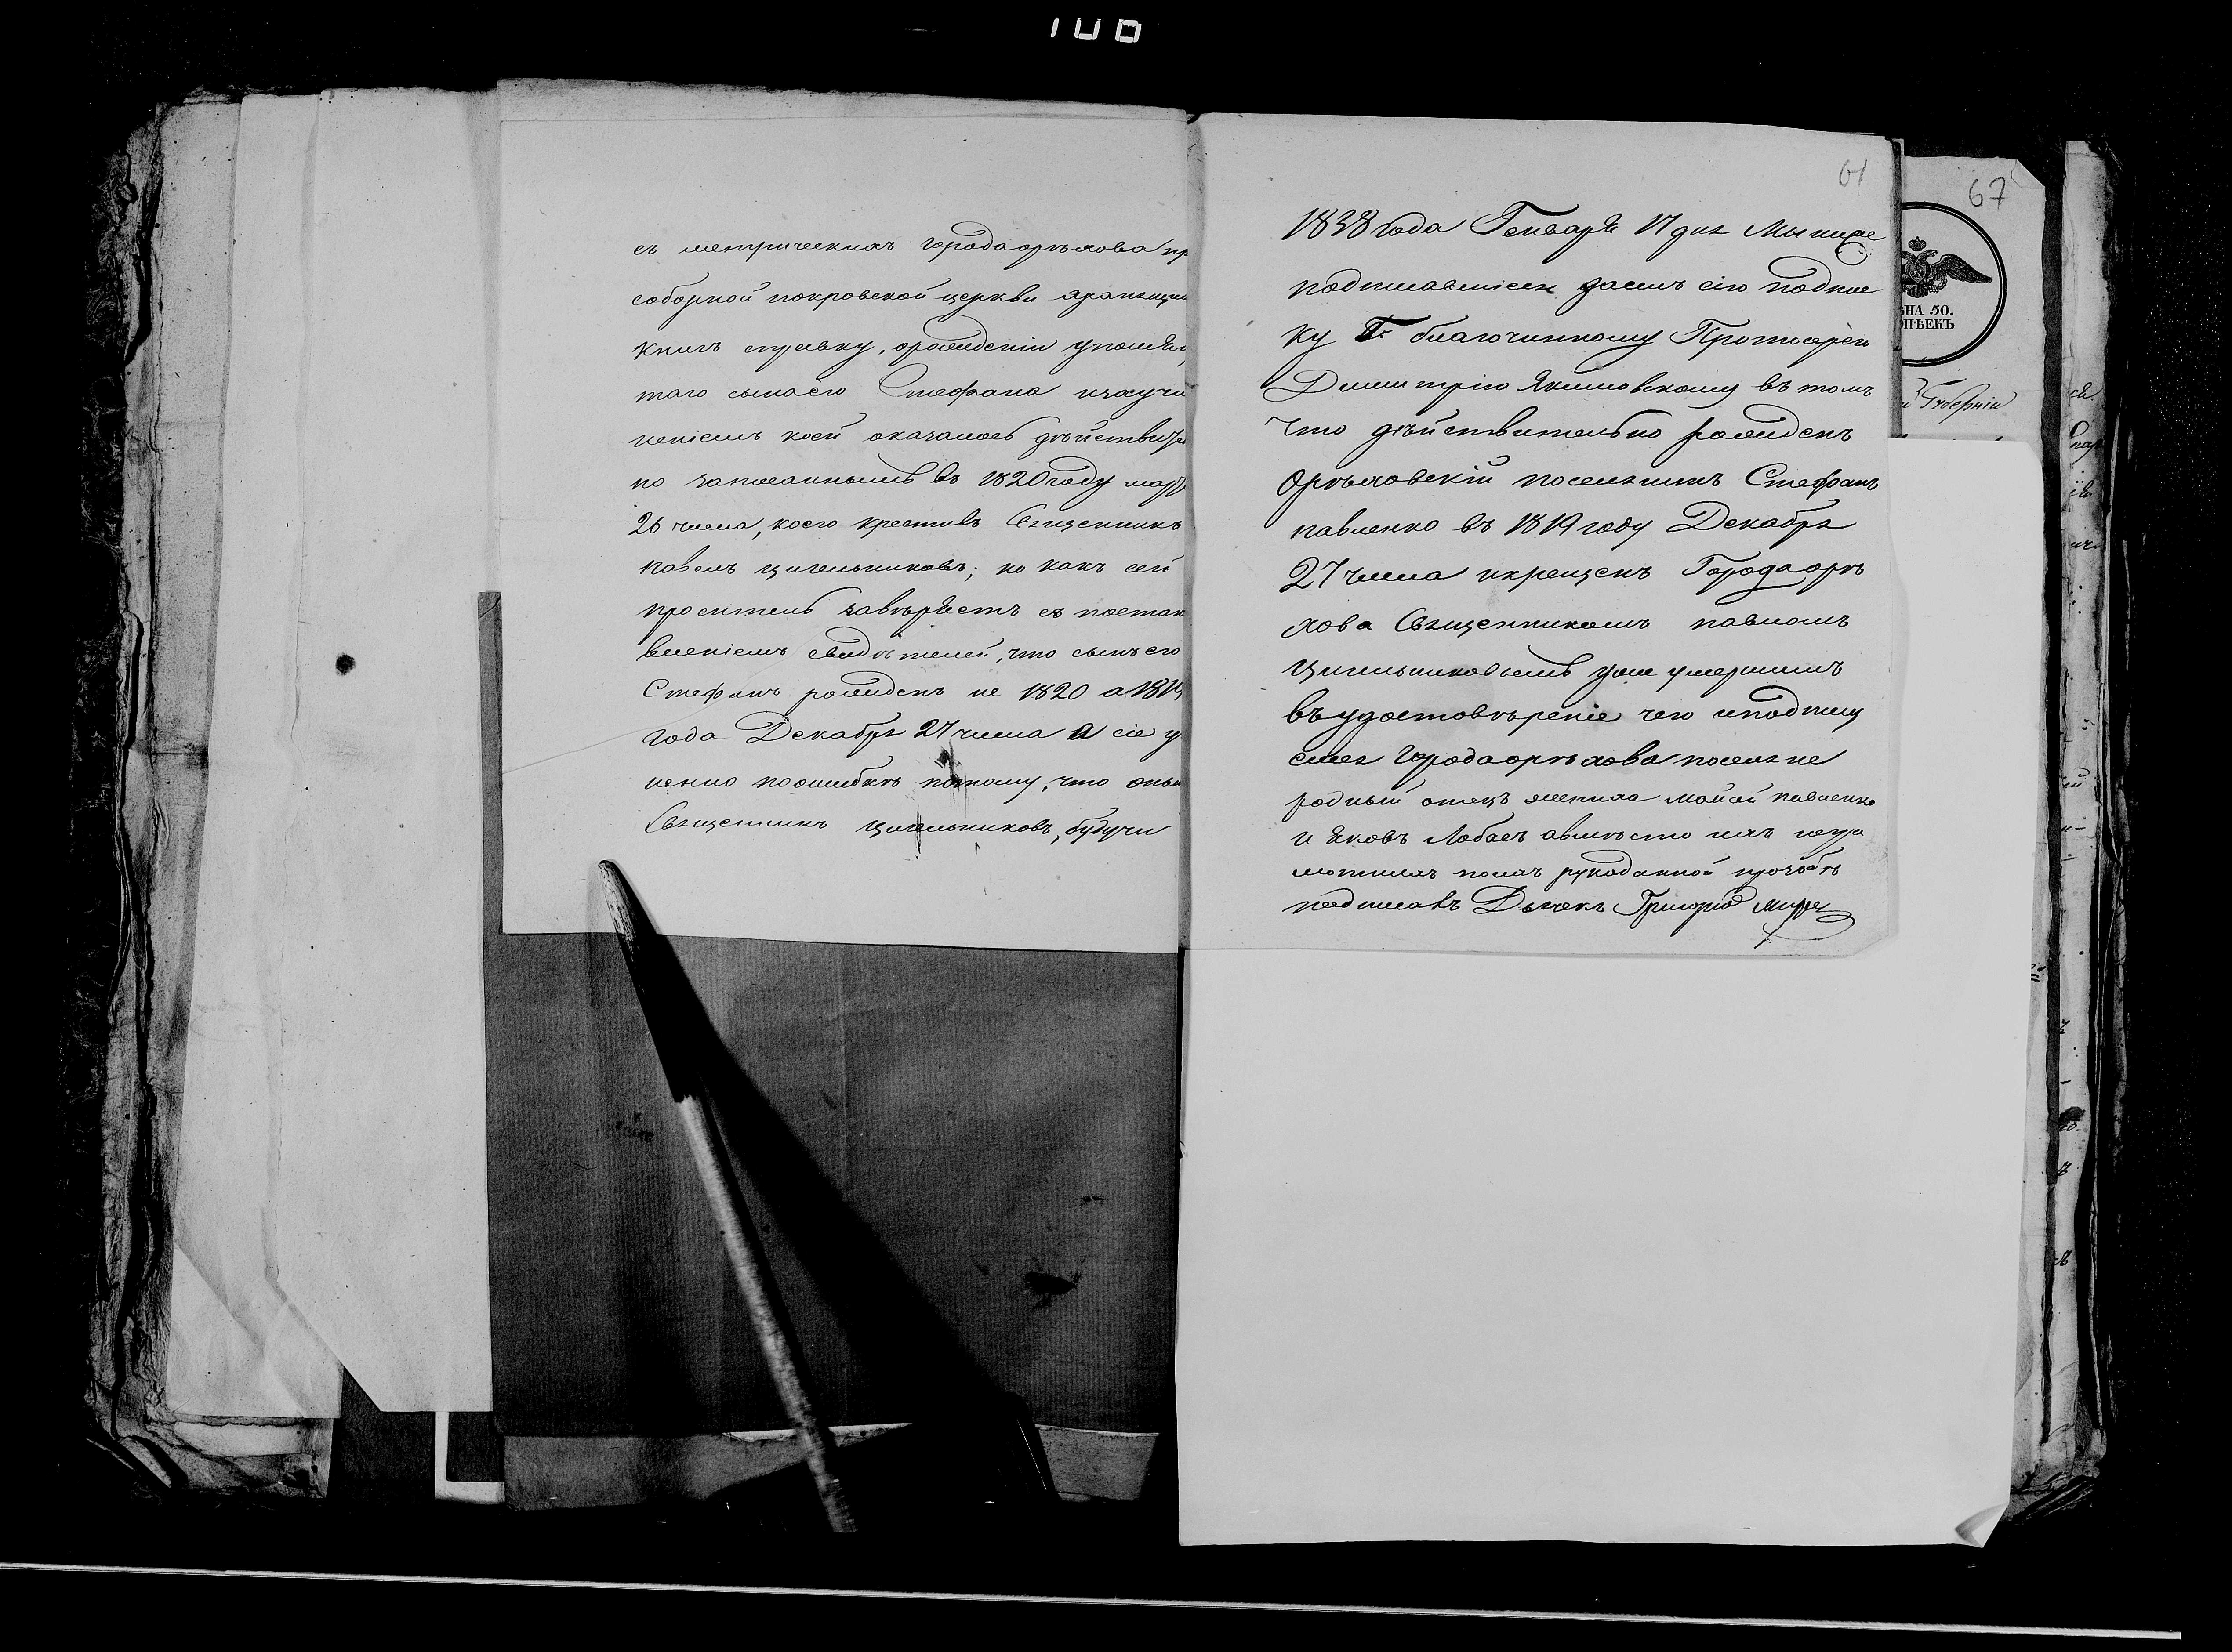 100
съ метрическихъ города орѣхова пр
соборной покровской церкви хранящи
книгъ справку, орождении упомян
таго сына его Стефана изъучи
неніемъ коей оказалось дѣйствител
но записаннымъ въ 1820 году мар
26 числа, коего крестивъ Священникъ
павелъ Цигельниковъ; но какъ сей
проситель завѣряетъ съ постан
вленіемъ свидѣтелей, что сынъ его
Стефанъ рожденъ не 1820 а 1819
года Декабря 27 числа а сіе у
нено поошибкѣ потому, что оны
Священникъ Цигельниковъ, будучи
61
1838 года Генваря 17 дня Мы ниже
подписавшіеся дали сію подпис
ку Г. благочинному Протоіерею
Димитрію Якимовскому въ томъ
Что дѣйствительно рожденъ
Орѣховскій поселянинъ Стефанъ
павленко въ 1819 году Декабря
27 числа икрещенъ Города орѣ
хова Священникомъ павломъ
Цигельниковымъ уже умершимъ
въ удостовѣреніе чего иподпису
емся Города орѣхова поселяне
родный отецъ жениха павленко
и Яковъ Лобасъ авмѣсто ихъ негра
мотныхъ поихъ рукоданной прозьбѣ
подписавъ Дьячекъ Григорій
67
ЦѢНА 50.
КОПѢЕКЪ
Губерніи